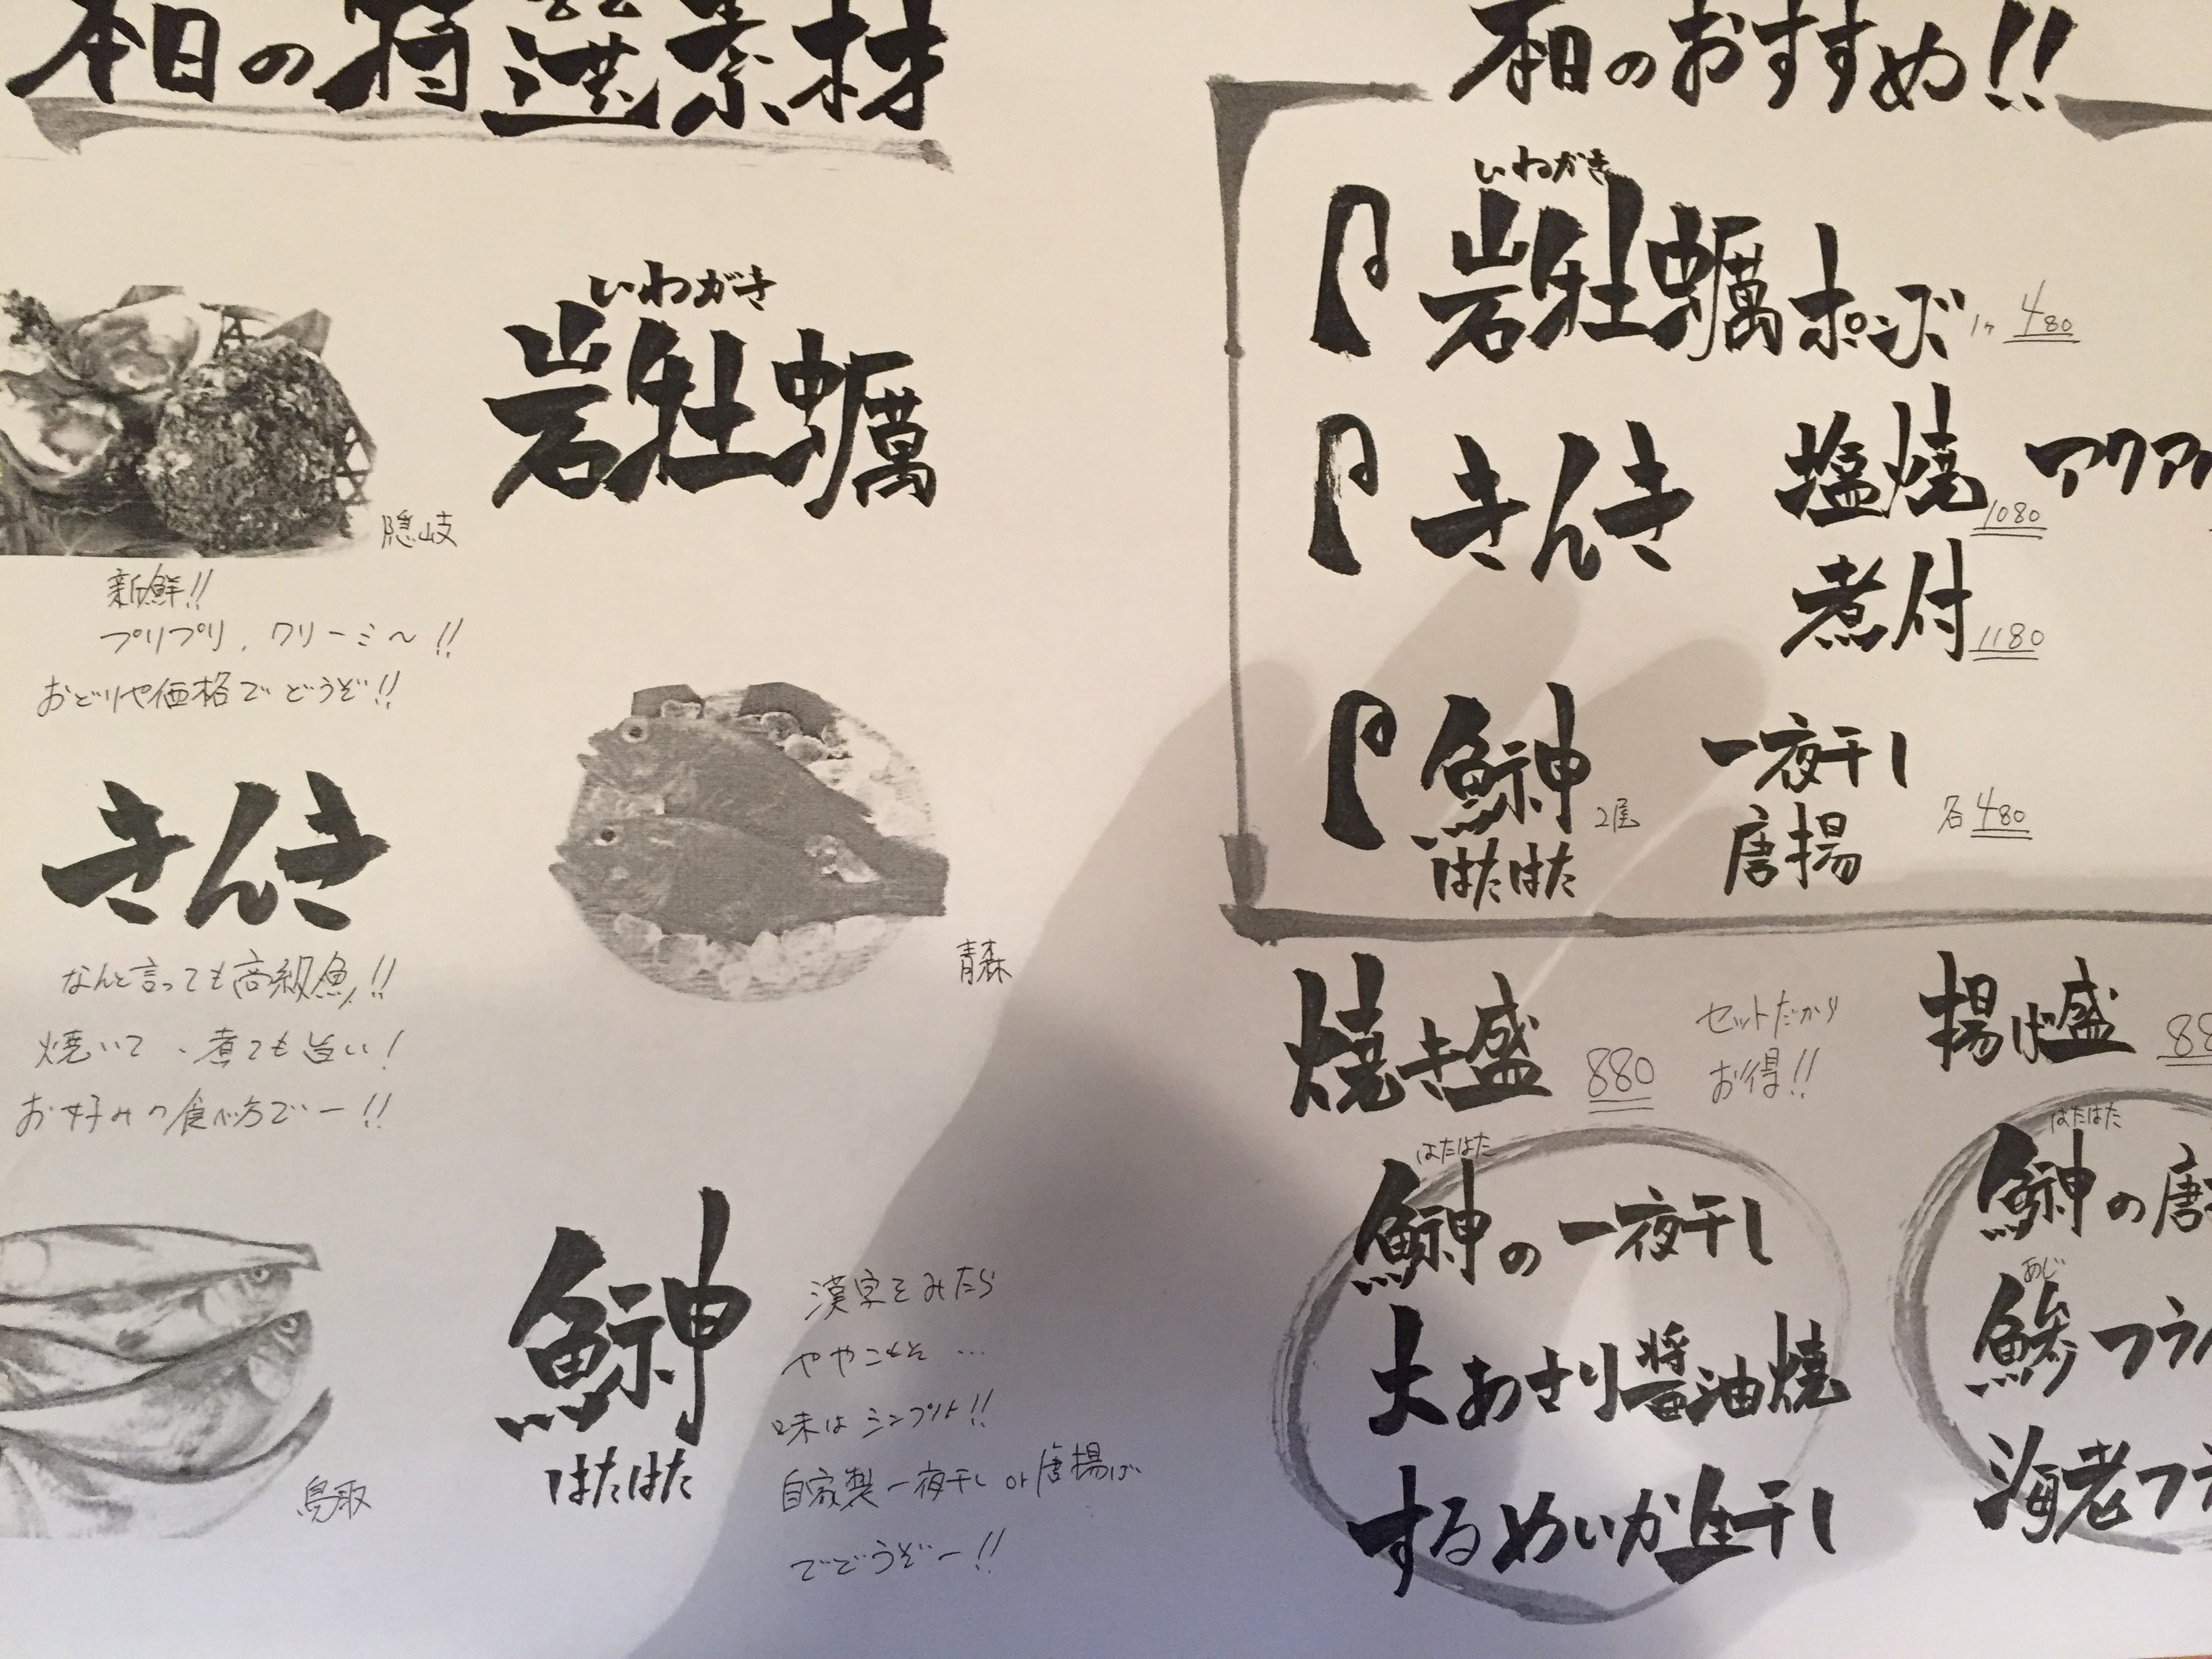 本日の特選素材
いわがき
岩牡蠣
隠岐
新鮮!!
プリプリ、クリーミ〜!!
おどりや価格でどうぞ!!
きんき
青森
なんと言っても高級魚!!
焼いて、煮ても旨い!
お好みの食べ方でー!!
鰰
はたはた
鳥取
漢字をみたら
ややこしそ…
味はシンプル!!
自家製一夜干し or 唐揚げ
でどうぞー!!
本日のおすすめ!!
いわがき
岩牡蠣ポンズ 1ヶ 480
きんき 塩焼 1080 アクア
煮付 1180
鰰 2尾 一夜干し
はたはた 唐揚 各480
焼き盛 880
セットだから
お得!!
はたはた
鰰の一夜干し
大あさり醤油焼
するめいか生干し
揚げ盛 88
はたはた
鰰の唐
あじ
鯵フラ
海老フ